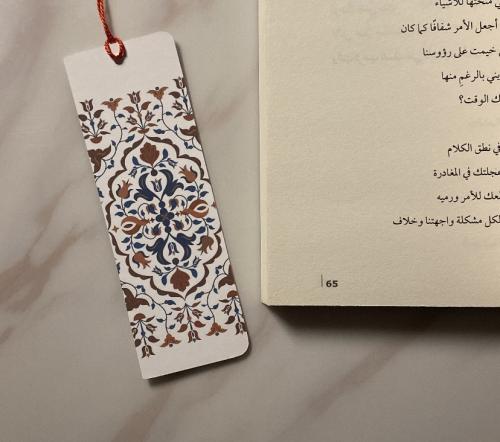 منحتها للأشياء
أجعل الأمر شفافًا كما كان
خيمت على رؤوسنا
يني بالرغم منها
ك الوقت؟
في نطق الكلام
عجلتك في المغادرة
عك للأمر ورميه
لكل مشكلة واجهتنا وخلاف
65